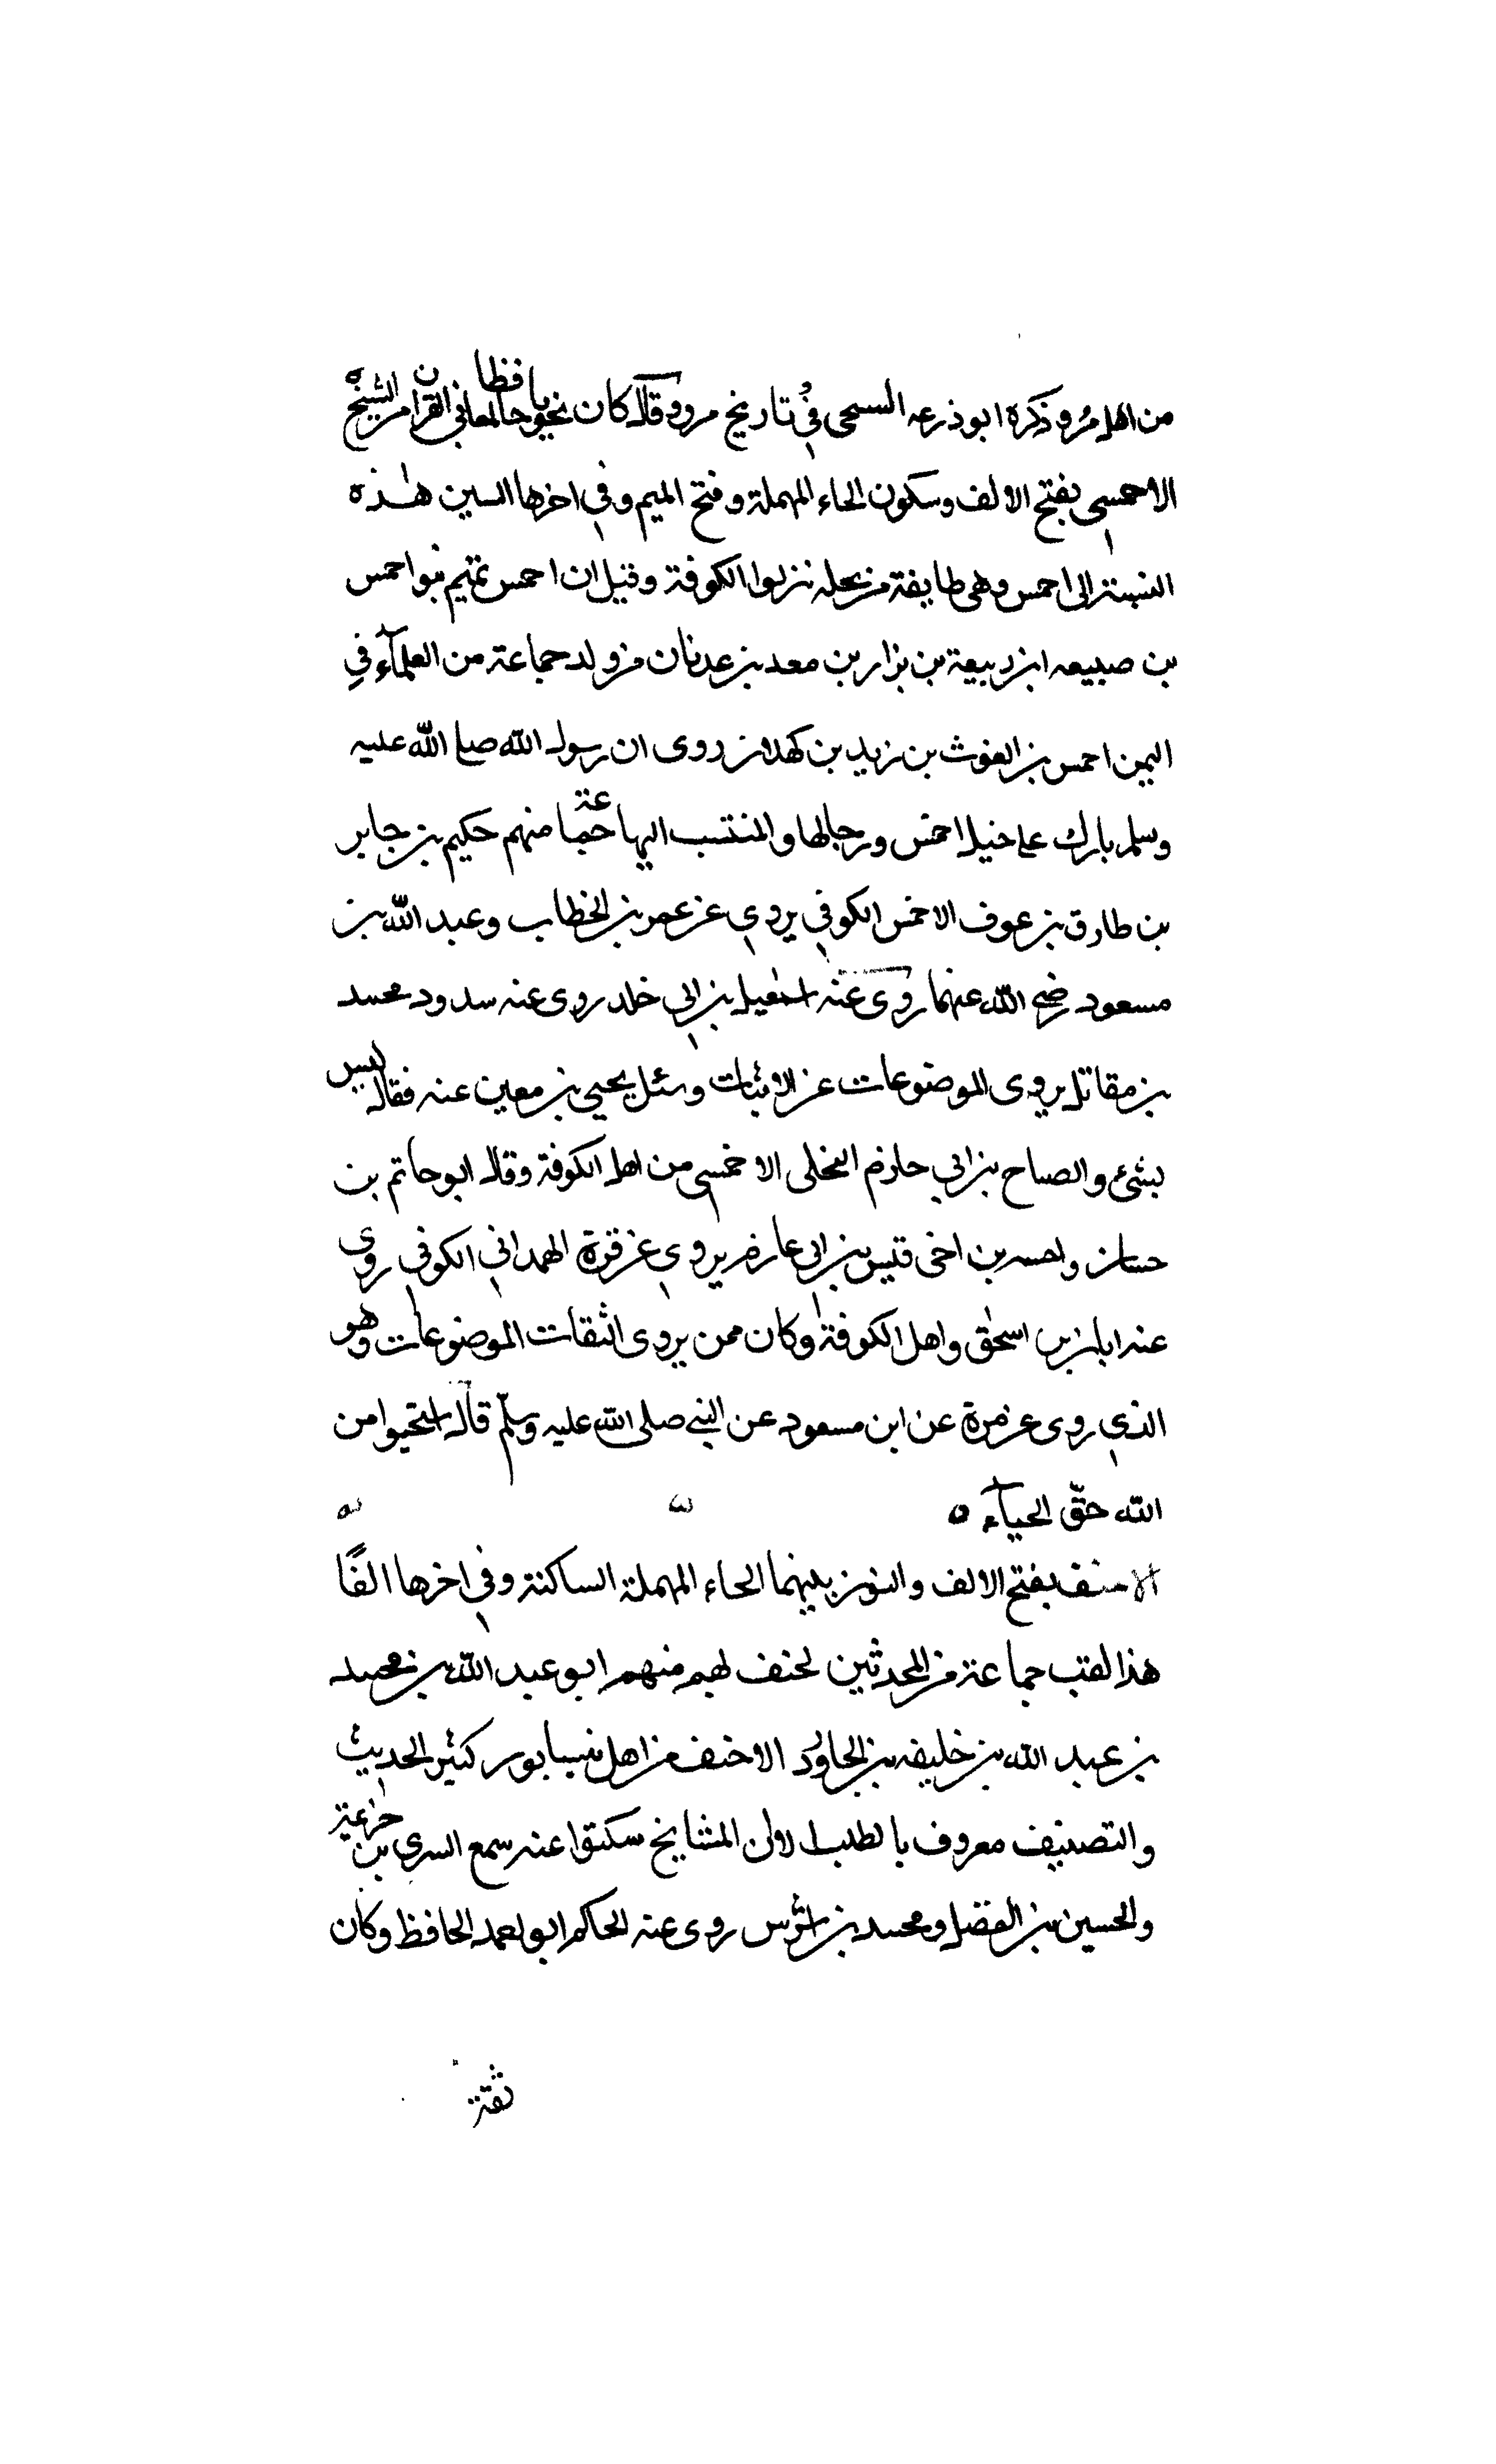 من اهل مرو ذكره ابو ذرعه السبحى في تاريخ مرو وقال كان نحويا حافظا لمعاني القران من الشيخه
الاحمسي بفتح الالف وسكون الحاء المهملة وفتح الميم وفي اخرها السين هذه
النسبة الى احمس وهى طايفة من بجله نزلوا الكوفة وقيل ان احمس تميم بنو احمس
بن صبيعه ابن ربيعة بن نزار بن معد بن عدنان من ولد جماعة من العلمآء في
اليمن احمس بن الغوث بن زيد بن كهلان روى ان رسول الله صلى الله عليه
وسلم بارك على خيل احمس ورجالها والمنتسب اليها جماعة منهم حكيم بن جابر
بن طارق بن عوف الاحمس الكوفي يروي عن عمر بن الخطاب وعبد الله بن
مسعود رضي الله عنهما روى عنه اسمعيل بن ابي خلد روى عنه سدود محمد
بن مقاتل يروى الموضوعات عن الاثبات وسئل يحيى بن معين عنه فقال ليس
بشئ والصباح بن ابي حازم البخلى الاخمسي من اهل الكوفة وقال ابو حاتم بن
حسان واحسه بن اخى قيس بن ابي عارض يروي عن قرة الهمداني الكوفي روى
عنه ابان بن اسحق واهل الكوفة وكان ممن يروى الثقات الموضوعات وهو
الذي روى عن مرة عن ابن مسعود عن النبي صلى الله عليه وسلم قال استحيوا من
الله حق الحيآء ٥
الاحنف بفتح الالف والنون بينهما الحاء المهملة الساكنة وفي اخرها الفا
هذا لقب جماعة من المحدثين لحنف لهم منهم ابو عبد الله بن محمد
بن عبد الله بن خليفه بن الجاوُد الاحنف من اهل نيسابور كثير الحديث
والتصنيف معروف بالطلب لان المشايخ سكتوا عنه سمع السري بن خزيمة
والحسين بن الفضل ومحمد بن اشرس روى عنه الحاكم ابو احمد الحافظ وكان
ثقة